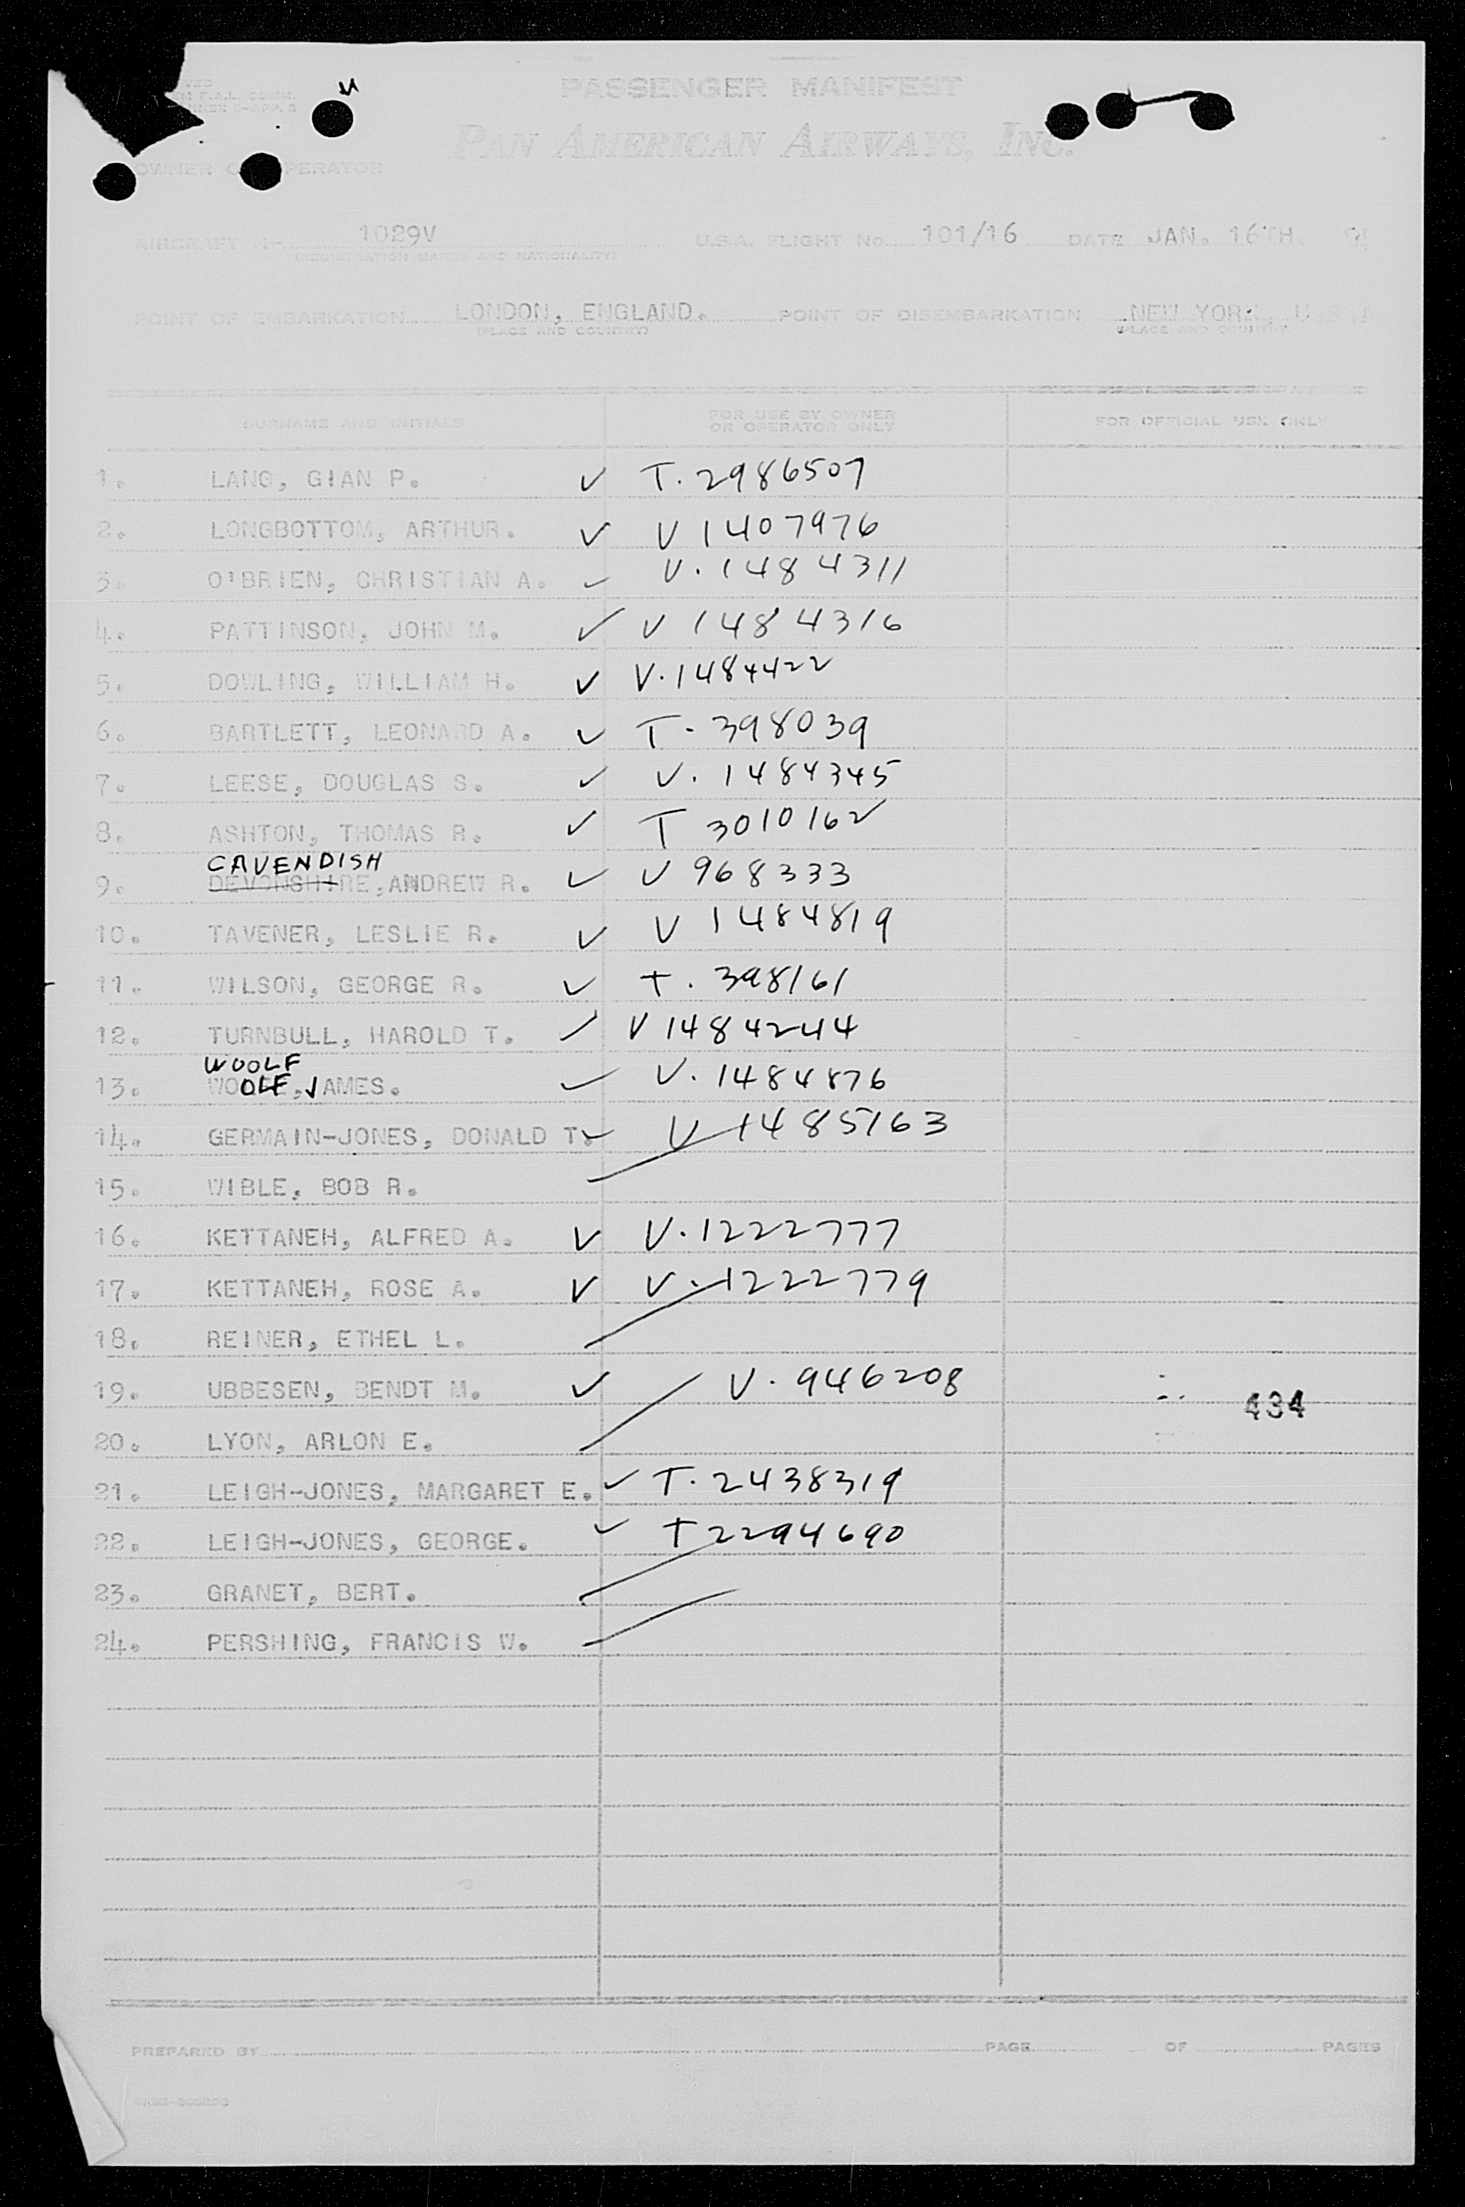 PASSENGER MANIFEST
PAN AMERICAN AIRWAYS, INC.
OWNER OR OPERATOR
AIRCRAFT 1029V U.S.A. FLIGHT No. 101/16 DATE JAN. 16TH.
(REGISTRATION MARKS AND NATIONALITY)
POINT OF EMBARKATION LONDON, ENGLAND. POINT OF DISEMBARKATION NEW YORK, U.S.A.
(PLACE AND COUNTRY) (PLACE AND COUNTRY)
SURNAME AND INITIALS FOR USE BY OWNER OR OPERATOR ONLY FOR OFFICIAL USE ONLY
1. LANG, GIAN P. ✓ T. 2986507
2. LONGBOTTOM, ARTHUR. ✓ V 1407976
3. O'BRIEN, CHRISTIAN A. ✓ V. 1484311
4. PATTINSON, JOHN M. ✓ V 1484316
5. DOWLING, WILLIAM H. ✓ V. 1484422
6. BARTLETT, LEONARD A. ✓ T - 398039
7. LEESE, DOUGLAS S. ✓ V. 1484345
8. ASHTON, THOMAS R. ✓ T 3010162
CAVENDISH
9. DEVONSHIRE, ANDREW R. ✓ V 968333
10. TAVENER, LESLIE R. ✓ V 1484819
11. WILSON, GEORGE R. ✓ T. 398161
12. TURNBULL, HAROLD T. ✓ V 1484244
WOOLF
13. WOOLF, JAMES. ✓ V. 1484876
14. GERMAIN-JONES, DONALD T. ✓ V 1485163
15. WIBLE, BOB R.
16. KETTANEH, ALFRED A. ✓ V. 1222777
17. KETTANEH, ROSE A. ✓ V. 1222779
18. REINER, ETHEL L.
19. UBBESEN, BENDT M. ✓ V. 946208
434
20. LYON, ARLON E.
21. LEIGH-JONES, MARGARET E. ✓ T. 2438319
22. LEIGH-JONES, GEORGE. ✓ T 2294690
23. GRANET, BERT.
24. PERSHING, FRANCIS W.
PREPARED BY PAGE OF PAGES